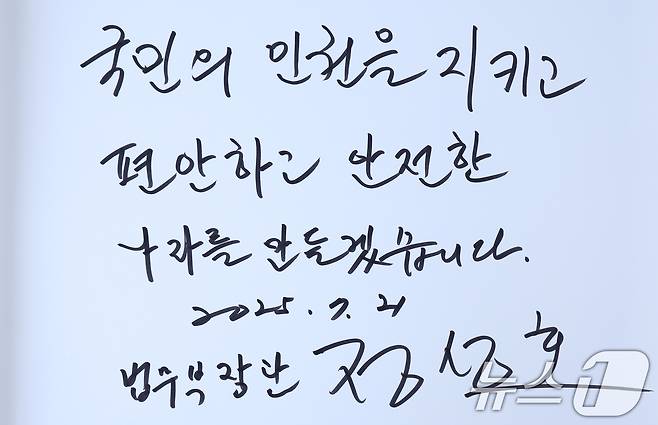 국민의 인권을 지키고
편안하고 안전한
나라를 만들겠습니다.
2025. 7. 21
법무부장관 정성호
뉴스1